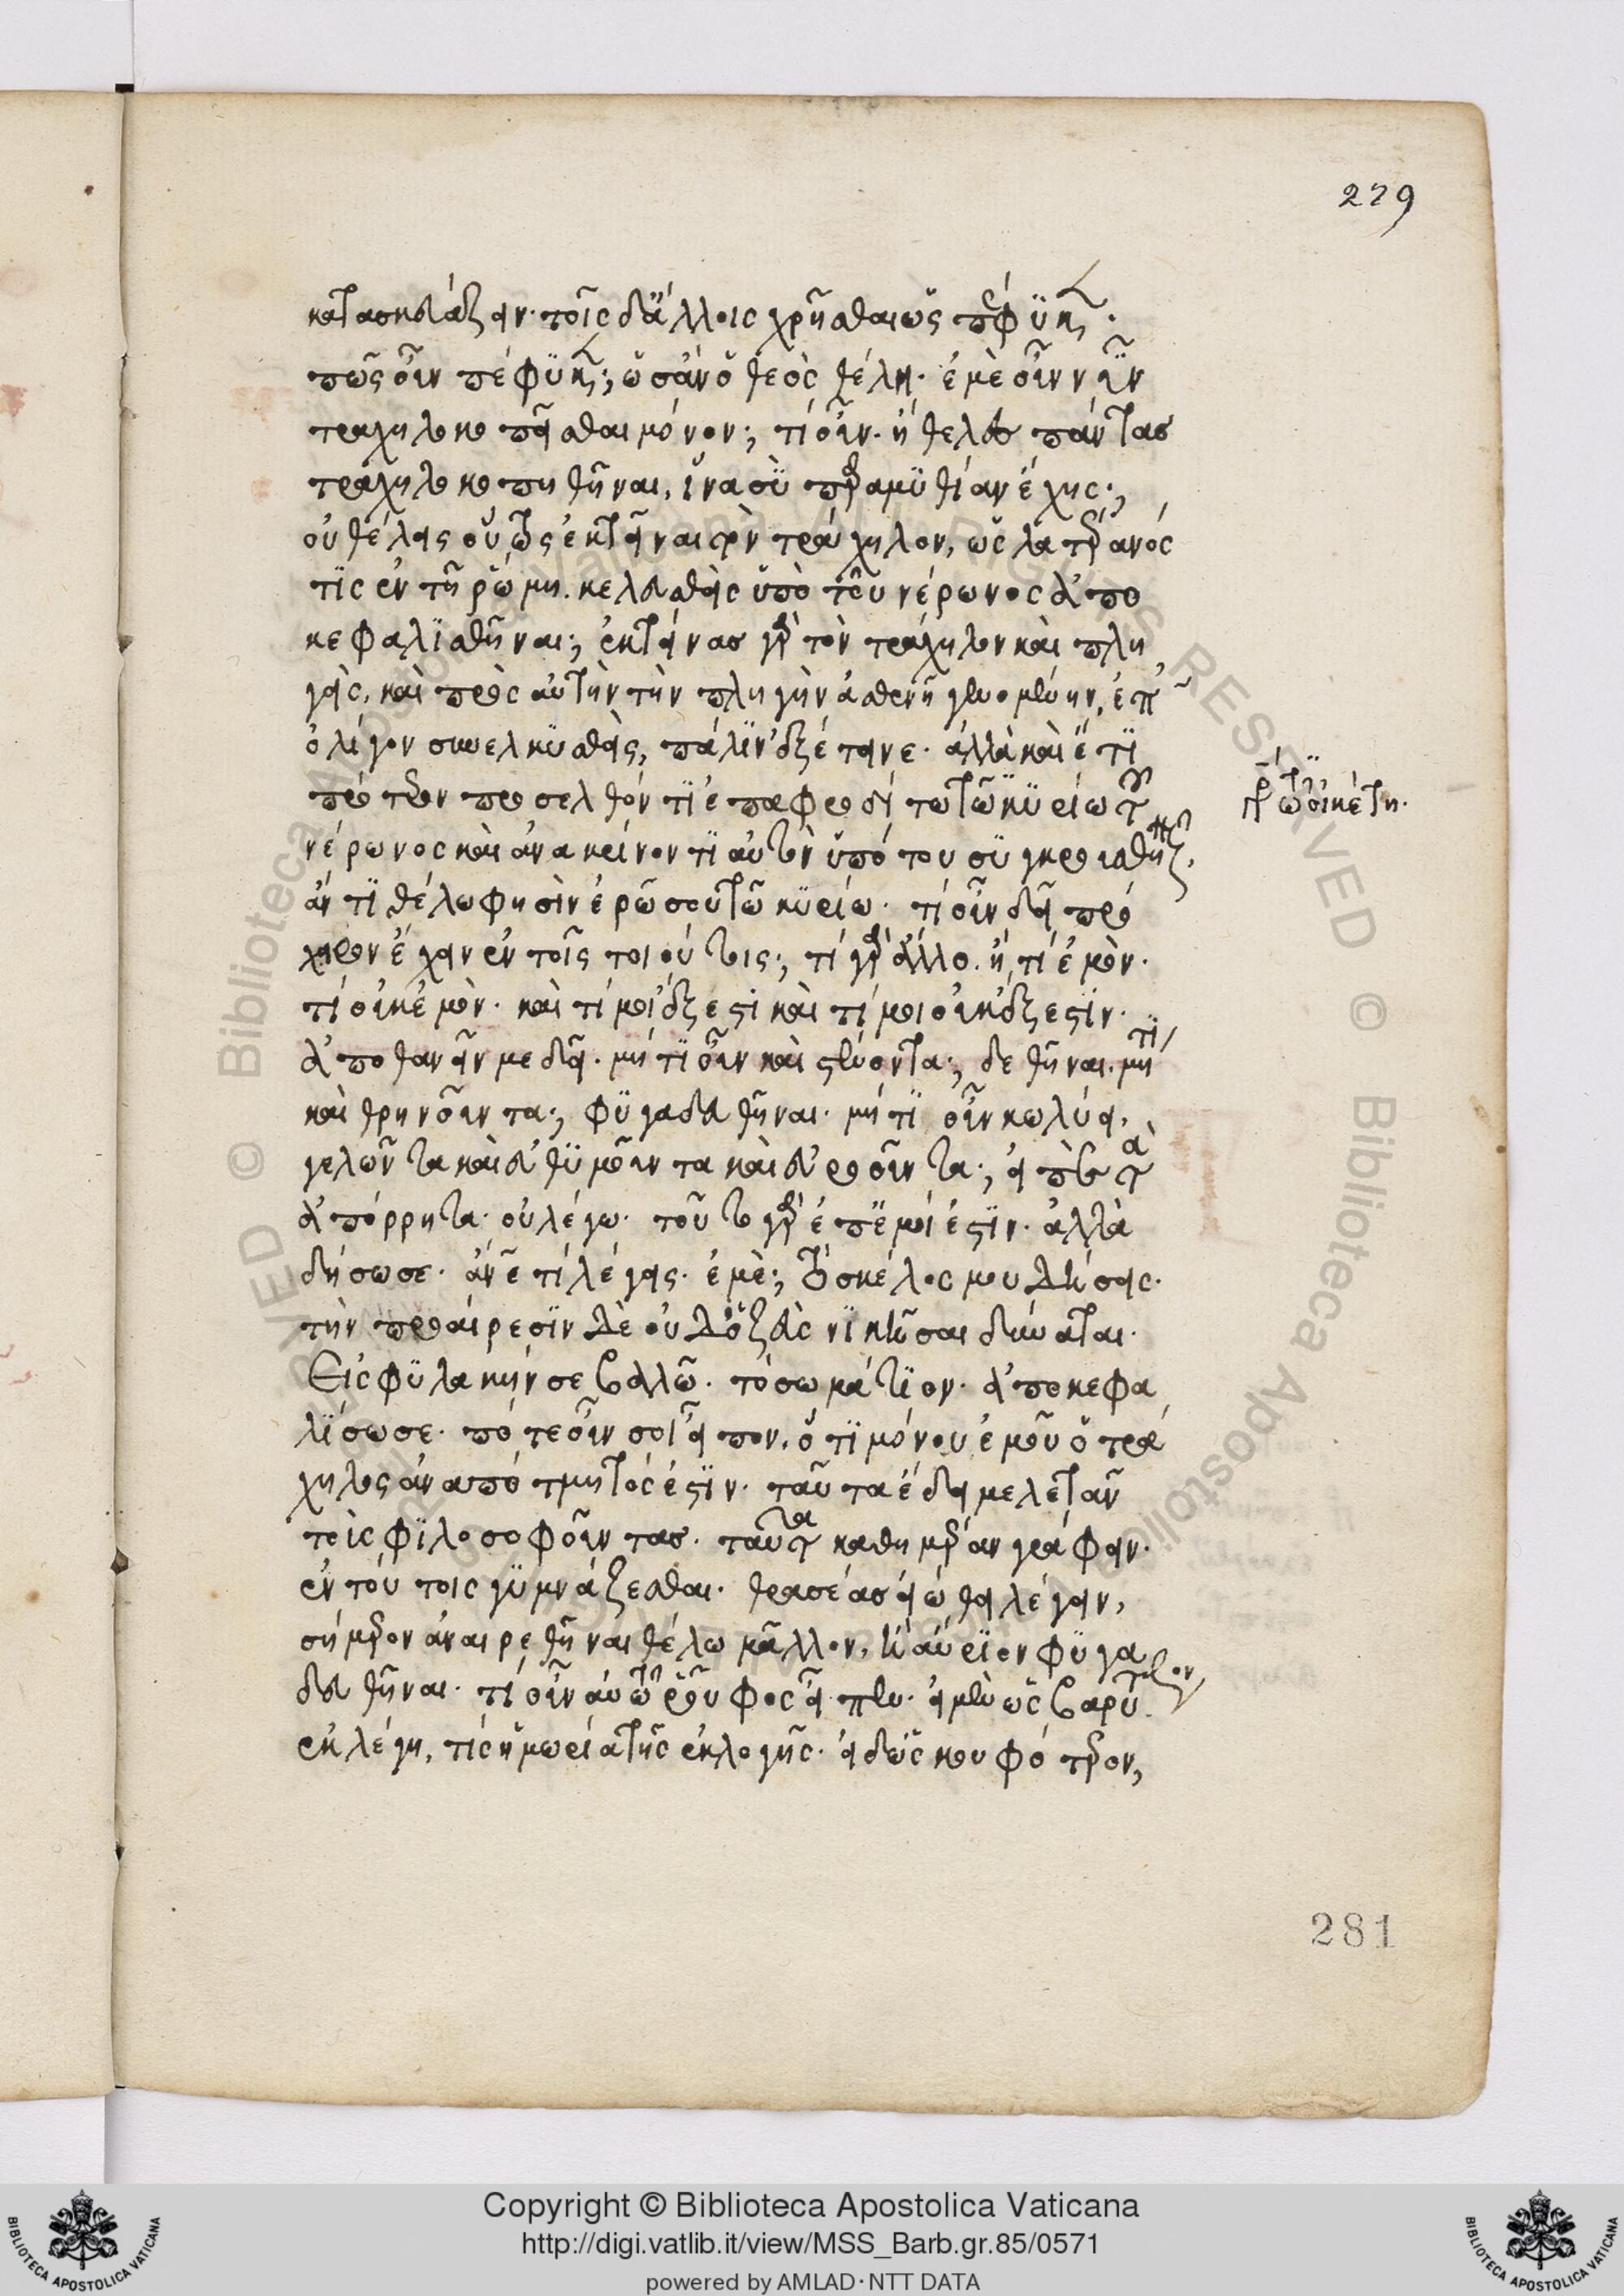 229
κατασκευάζειν· τοῖς δ' ἄλλοις χρῆσθαι ὡς πέφυκε·
πῶς οὖν πέφυκε; ὡς ἂν ὁ θεὸς θέλη· ἐμὲ οὖν νῦν
τραχηλοκοπεῖσθαι μόνον; τί οὖν· ἤθελες πάντας
τραχηλοκοπηθῆναι, ἵνα σὺ παραμυθίαν ἔχης;
οὐ θέλεις οὕτως ἐκτεῖναι τὸν τράχηλον, ὡς λατερανός
τις ἐν τῇ ῥώμη. κελευσθεὶς ὑπὸ τοῦ νέρωνος ἀπο
κεφαλισθῆναι; ἐκτείνας γὰρ τὸν τράχηλον καὶ πλη
γεὶς, καὶ πρὸς αὐτὴν τὴν πληγὴν ἀσθενῆ γενομένην, ἐπ'
ὀλίγον συνελκυσθεὶς, πάλιν ἐξέτεινε· ἀλλὰ καὶ ἔτι
πρότερον προσελθόντι ἐπαφροδίτω τῶ κυρίω τοῦ
νέρωνος καὶ ἀνακρίνοντι αὐτὸν ὑπό του συγκρουσθῆναι,
ἄν τι θέλω φησὶν ἐρῶ σου τῶ κυρίω· τί οὖν δεῖ πρό
χειρον ἔχειν ἐν τοῖς τοιούτοις; τί γὰρ ἄλλο. ἢ τί ἐμὸν·
τί οὐκ ἐμὸν· καὶ τί μοι ἔξεστι καὶ τί μοι οὐκ ἔξεστιν·
ἀποθανεῖν με δεῖ· μή τι οὖν καὶ στένοντα; δεθῆναι. μή τι
καὶ θρηνοῦντα; φυγαδευθῆναι· μή τι οὖν κωλύει,
γελῶντα καὶ εὐθυμοῦντα καὶ εὐροοῦντα; εἰπὲ τὰ
ἀπόρρητα· οὐ λέγω· τοῦτο γὰρ ἐπ' ἐμοί ἐστιν· ἀλλὰ
δήσω σε· ἄνθρωπε τί λέγεις· ἐμὲ; τὸ σκέλος μου δήσεις·
τὴν προαίρεσιν δὲ οὐδ' ὁ ζεὺς νικῆσαι δύναται·
Εἰς φυλακήν σε βαλλῶ· τό σωμάτιον· ἀποκεφα
λίσω σε· πότε οὖν σοι εἶπον, ὅτι μόνου ἐμοῦ ὁ τρά
χηλος ἀναπότμητός ἐστιν· ταῦτα ἔδει μελετᾶν
τοὺς φιλοσοφοῦντας· ταῦτα καθημέραν γράφειν·
ἐν τούτοις γυμνάζεσθαι· θρασέας εἰώθει λέγειν,
σήμερον ἀναιρεθῆναι θέλω μᾶλλον, ἢ αὔριον φυγα
δευθῆναι· τί οὖν αὐτῶ ῥοῦφος εἶπεν· εἰ μὲν ὡς βαρύτερον
ἐκλέγη, τίς ἡ μωρία τῆς ἐκλογῆς· εἰ δ' ὡς κουφότερον,
281
Copyright © Biblioteca Apostolica Vaticana
http://digi.vatlib.it/view/MSS_Barb.gr.85/0571
powered by AMLAD·NTT DATA